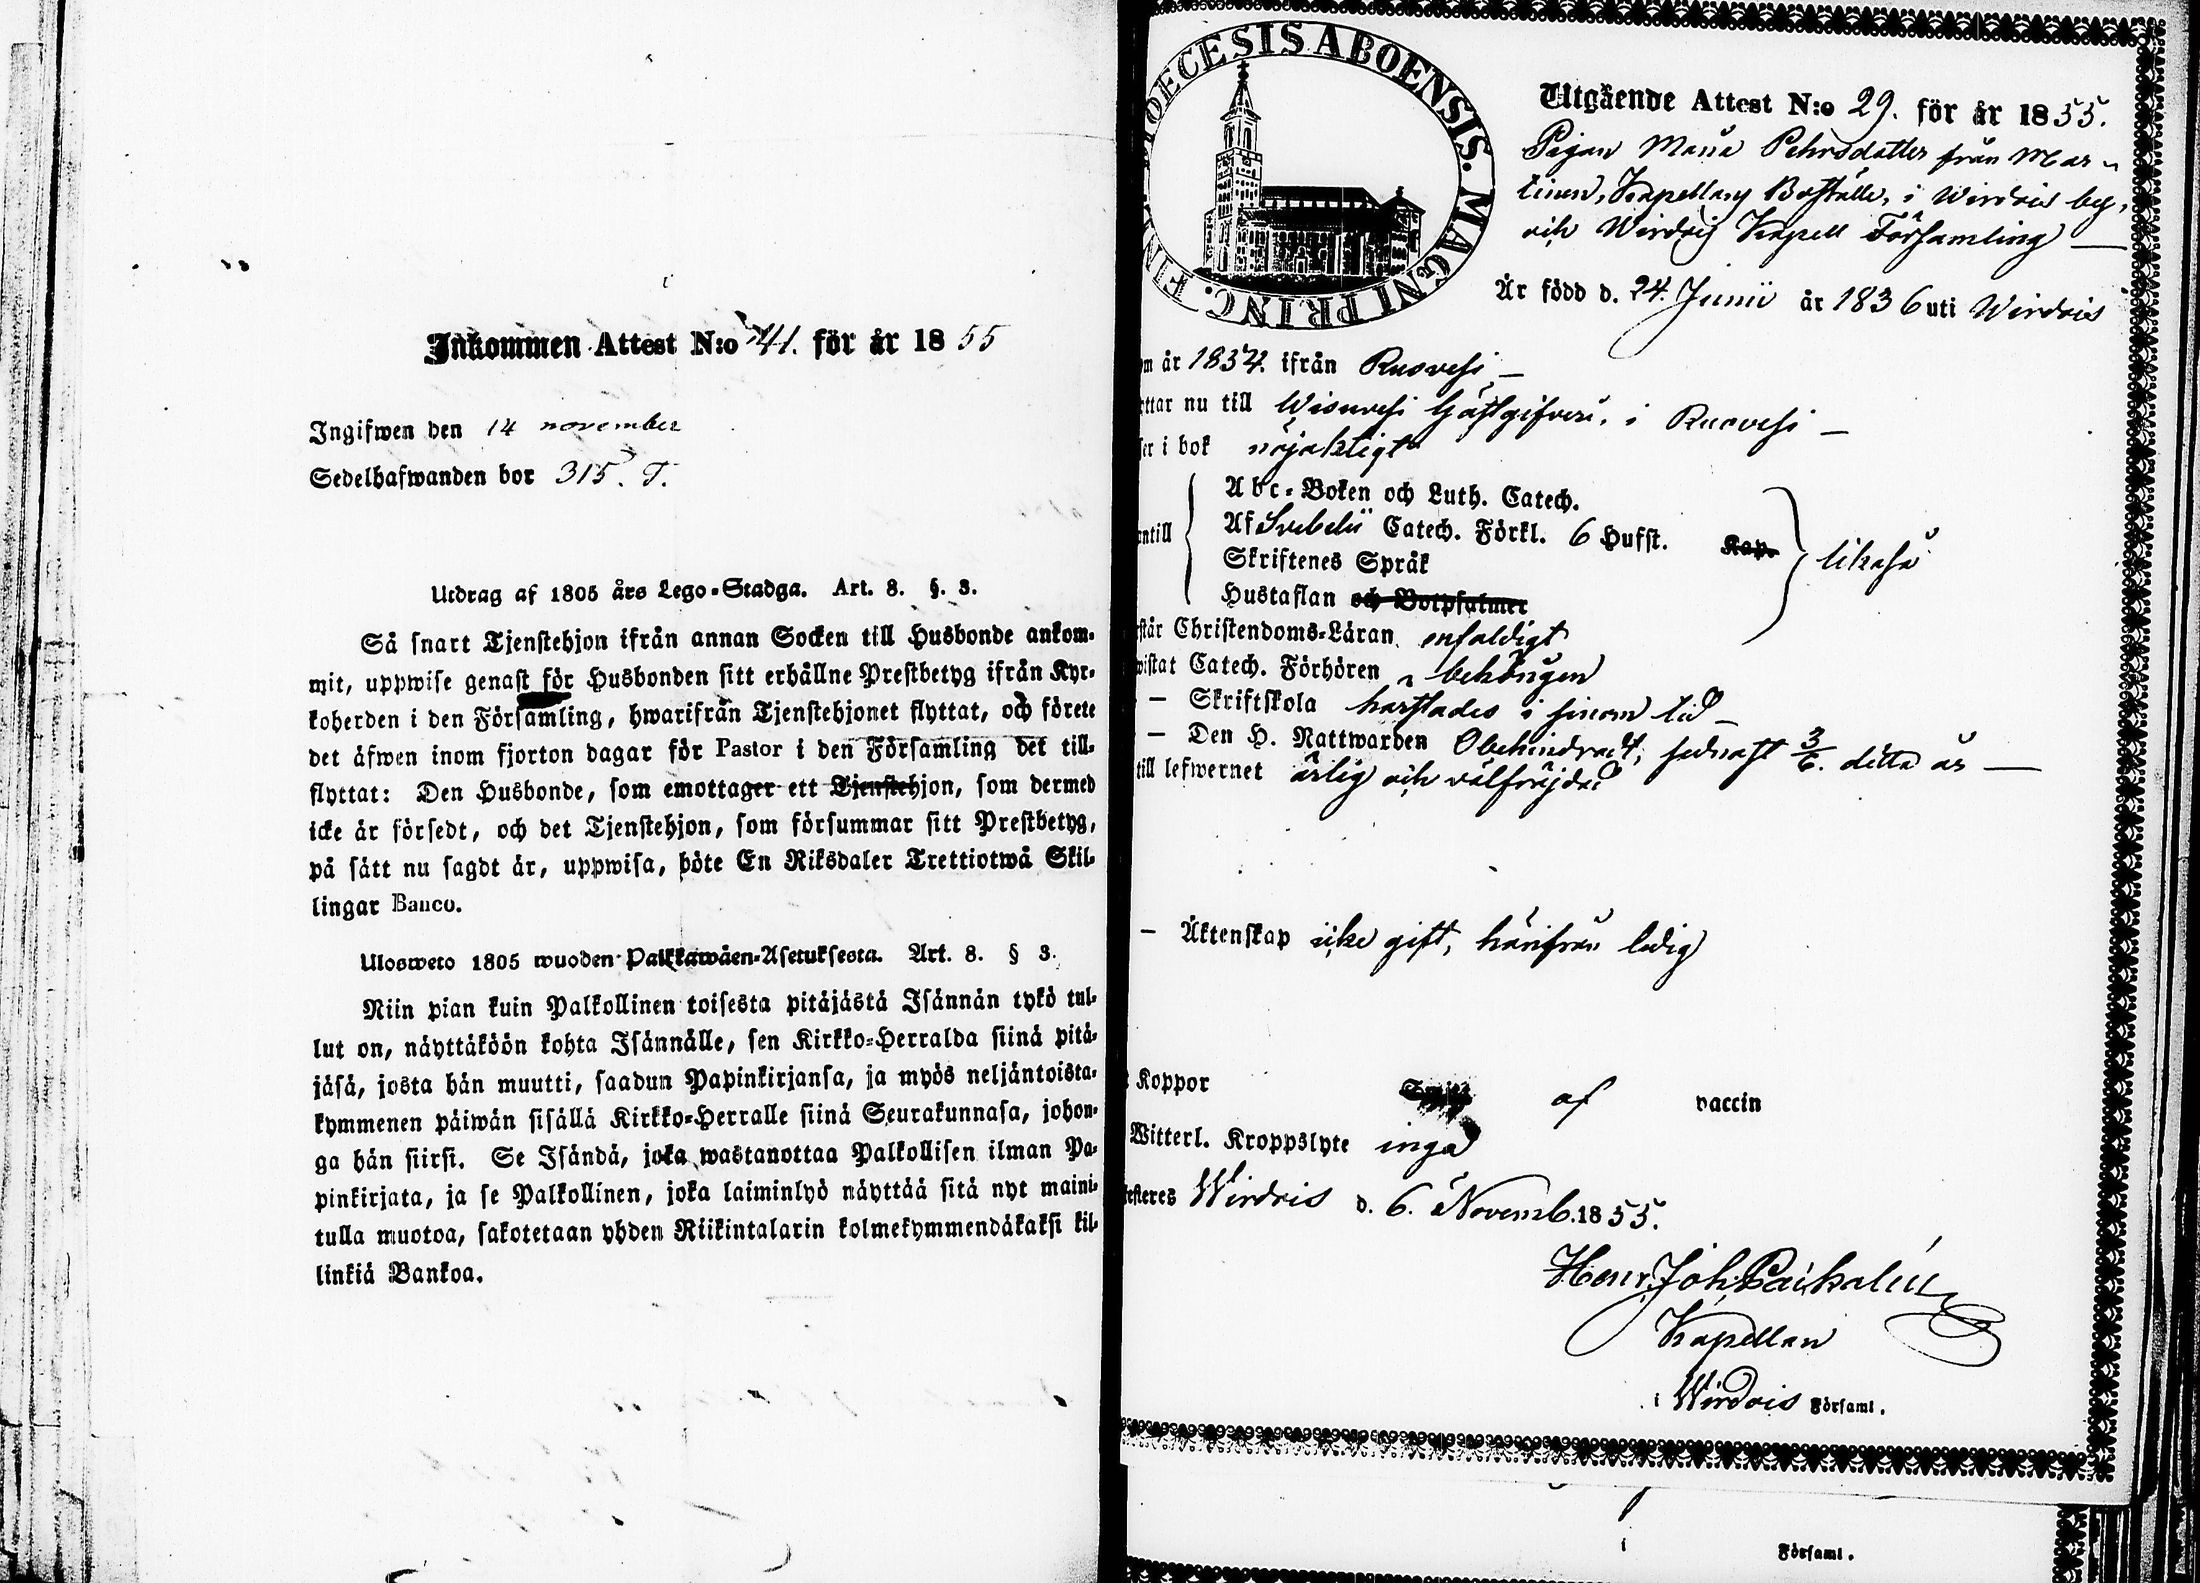 Inkommen Attest N:o 41. för år 1855
Ingifwen den 14 november
Sedelhafwanden bor 315. T.
Utdrag af 1805 års Lego-Stadga. Art. 8. §. 3.
Så snart Tjenstehjon ifrån annan Socken till Husbonde ankom-
mit, uppwise genast för Husbonden sitt erhållne Prestbetyg ifrån Kyr-
koherden i den Församling, hwarifrån Tjenstehjonet flyttat, och förete
det äfwen inom fjorton dagar för Pastor i den Församling det till-
flyttat: Den Husbonde, som emottager ett Tjenstehjon, som dermed
icke är försedt, och det Tjenstehjon, som försummar sitt Prestbetyg,
på sätt nu sagdt är, uppwisa, böte En Riksdaler Trettiotwå Skil-
lingar Banco.
Ulosweto 1805 wuoden Palkkawäen-Asetuksesta. Art. 8. § 3.
Niin pian kuin Palkollinen toisesta pitäjästä Isännän tykö tul-
lut on, näyttäköön kohta Isännälle, sen Kirkko-Herralda siinä pitä-
jäsä, josta hän muutti, saadun Papinkirjansa, ja myös neljäntoista-
kymmenen päiwän sisällä Kirkko-Herralle siinä Seurakunnasa, johon-
ga hän siirsi. Se Isändä, joka wastanottaa Palkollisen ilman Pa-
pinkirjata, ja se Palkollinen, joka laiminlyö näyttää sitä nyt maini-
tulla muotoa, sakotetaan yhden Riikintalarin kolmekymmendäkaksi kil-
linkiä Bankoa.
DIOECESIS ABOENSIS. MAGNI PRINC. FIN
Utgående Attest N:o 29. för år 1855.
Pigan Maria Pehrsdotter från Mar-
tinen, Kapellans Boställe, i Wirdois by,
och Wirdois Kapell Församling
Är född d. 24. Junii år 1836 uti Wirdois
om år 1854. ifrån Ruovesi
ttar nu till Wisuvesi Gästgifveri, i Ruovesi
ser i bok nöjaktigt
antill
Abc-Boken och Luth. Catech.
Af Svebelii Catech. Förkl. 6 Hufst. Kap.
Skriftenes Språk
Hustaflan och Botpsalmer
likaså
rstår Christendoms-Läran enfaldigt
wistat Catech. Förhören behörigen
— Skriftskola
— Den H. Nattwarden Obehindrad, senast 3/6. detta år
till lefwernet ärlig och välfräjdad
— Äktenskap icke gift, härifrån ledig
Koppor af vaccin
Witterl. Kroppslyte inga
testeres Wirdois d. 6. Novemb. 1855.
Henr. Joh. Paikalén
Kapellan
i Wirdois Församl.
i Församl.